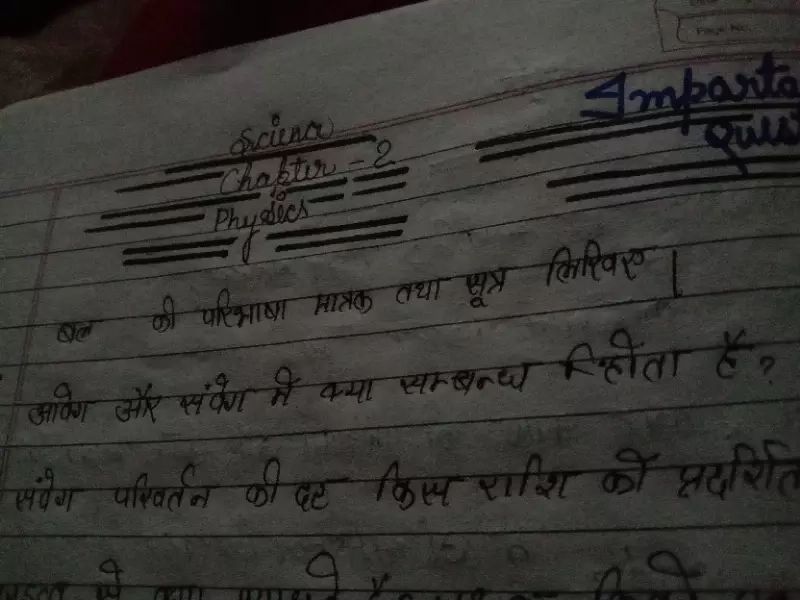 Page No.
Importa
Ques
Science
Chapter - 2
Physics
बल की परिभाषा मात्रक तथा सूत्र लिखिए।
आवेग और संवेग में क्या सम्बन्ध होता है?
संवेग परिवर्तन की दर किस राशि को प्रदर्शित